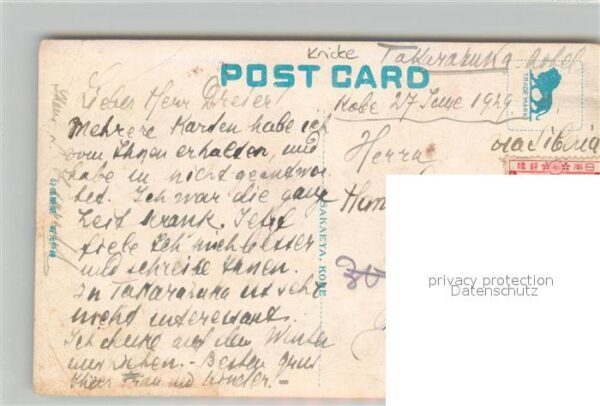 Knicke
Takarazuka Hotel
POST CARD
TRADE MARK
Kobe 27 June 1929
Lieber Herr Dreier!
Mehrere Karten habe ich
von Ihnen erhalten, und
habe in nicht geantwor
tet. Ich war die ganz
Zeit krank. Jetzt
fühle Ich mich besser
und schreibe Ihnen.
In Takarazuka ist sehr
nicht interessant.
Ich auf den Winter
Besten Grus
Ihrer Frau und Kinder. -
SAKAEYA, KOBE
via Siberia
Herrn
Ham
privacy protection
Datenschutz